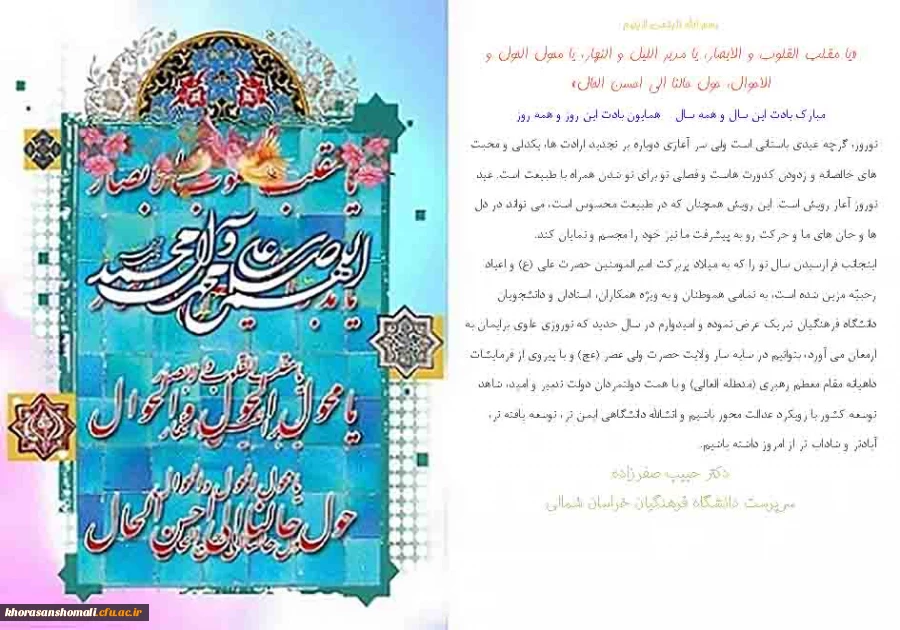 بسم الله الرحمن الرحیم
«یا مقلب القلوب و الابصار، یا مدبر اللیل و النهار، یا محول الحول و
الاحوال، حول حالنا الی احسن الحال»
مبارک بادت این سال و همه سال همایون بادت این روز و همه روز
نوروز، گرچه عیدی باستانی است ولی سر آغازی دوباره بر تجدید ارادت ها، یکدلی و محبت
های خالصانه و زدودن کدورت هاست و فصلی نو برای نو شدن همراه با طبیعت است. عید
نوروز آغاز رویش است. این رویش همچنان که در طبیعت محسوس است، می تواند در دل
ها و جان های ما و حرکت رو به پیشرفت ما نیز خود را مجسم و نمایان کند.
اینجانب فرارسیدن سال نو را که به میلاد پربرکت امیرالمومنین حضرت علی (ع) و اعیاد
رجبیّه مزین شده است، به تمامی هموطنان و به ویژه همکاران، استادان و دانشجویان
دانشگاه فرهنگیان تبریک عرض نموده و امیدوارم در سال جدید که نوروزی علوی برایمان به
ارمغان می آورد، بتوانیم در سایه سار ولایت حضرت ولی عصر (عج) و با پیروی از فرمایشات
داهیانه مقام معظم رهبری (مدظله العالی) و با همت دولتمردان دولت تدبیر و امید، شاهد
توسعه کشور با رویکرد عدالت محور باشیم و انشالله دانشگاهی ایمن تر، توسعه یافته تر،
آبادتر و شاداب تر از امروز داشته باشیم.
دکتر حبیب صفرزاده
سرپرست دانشگاه فرهنگیان خراسان شمالی
یا مقلب القلوب و الابصار
اللهم صل علی محمد و آل محمد
یا محول الحول و الاحوال
حول حالنا الی احسن الحال
khorasanshomali.cfu.ac.ir